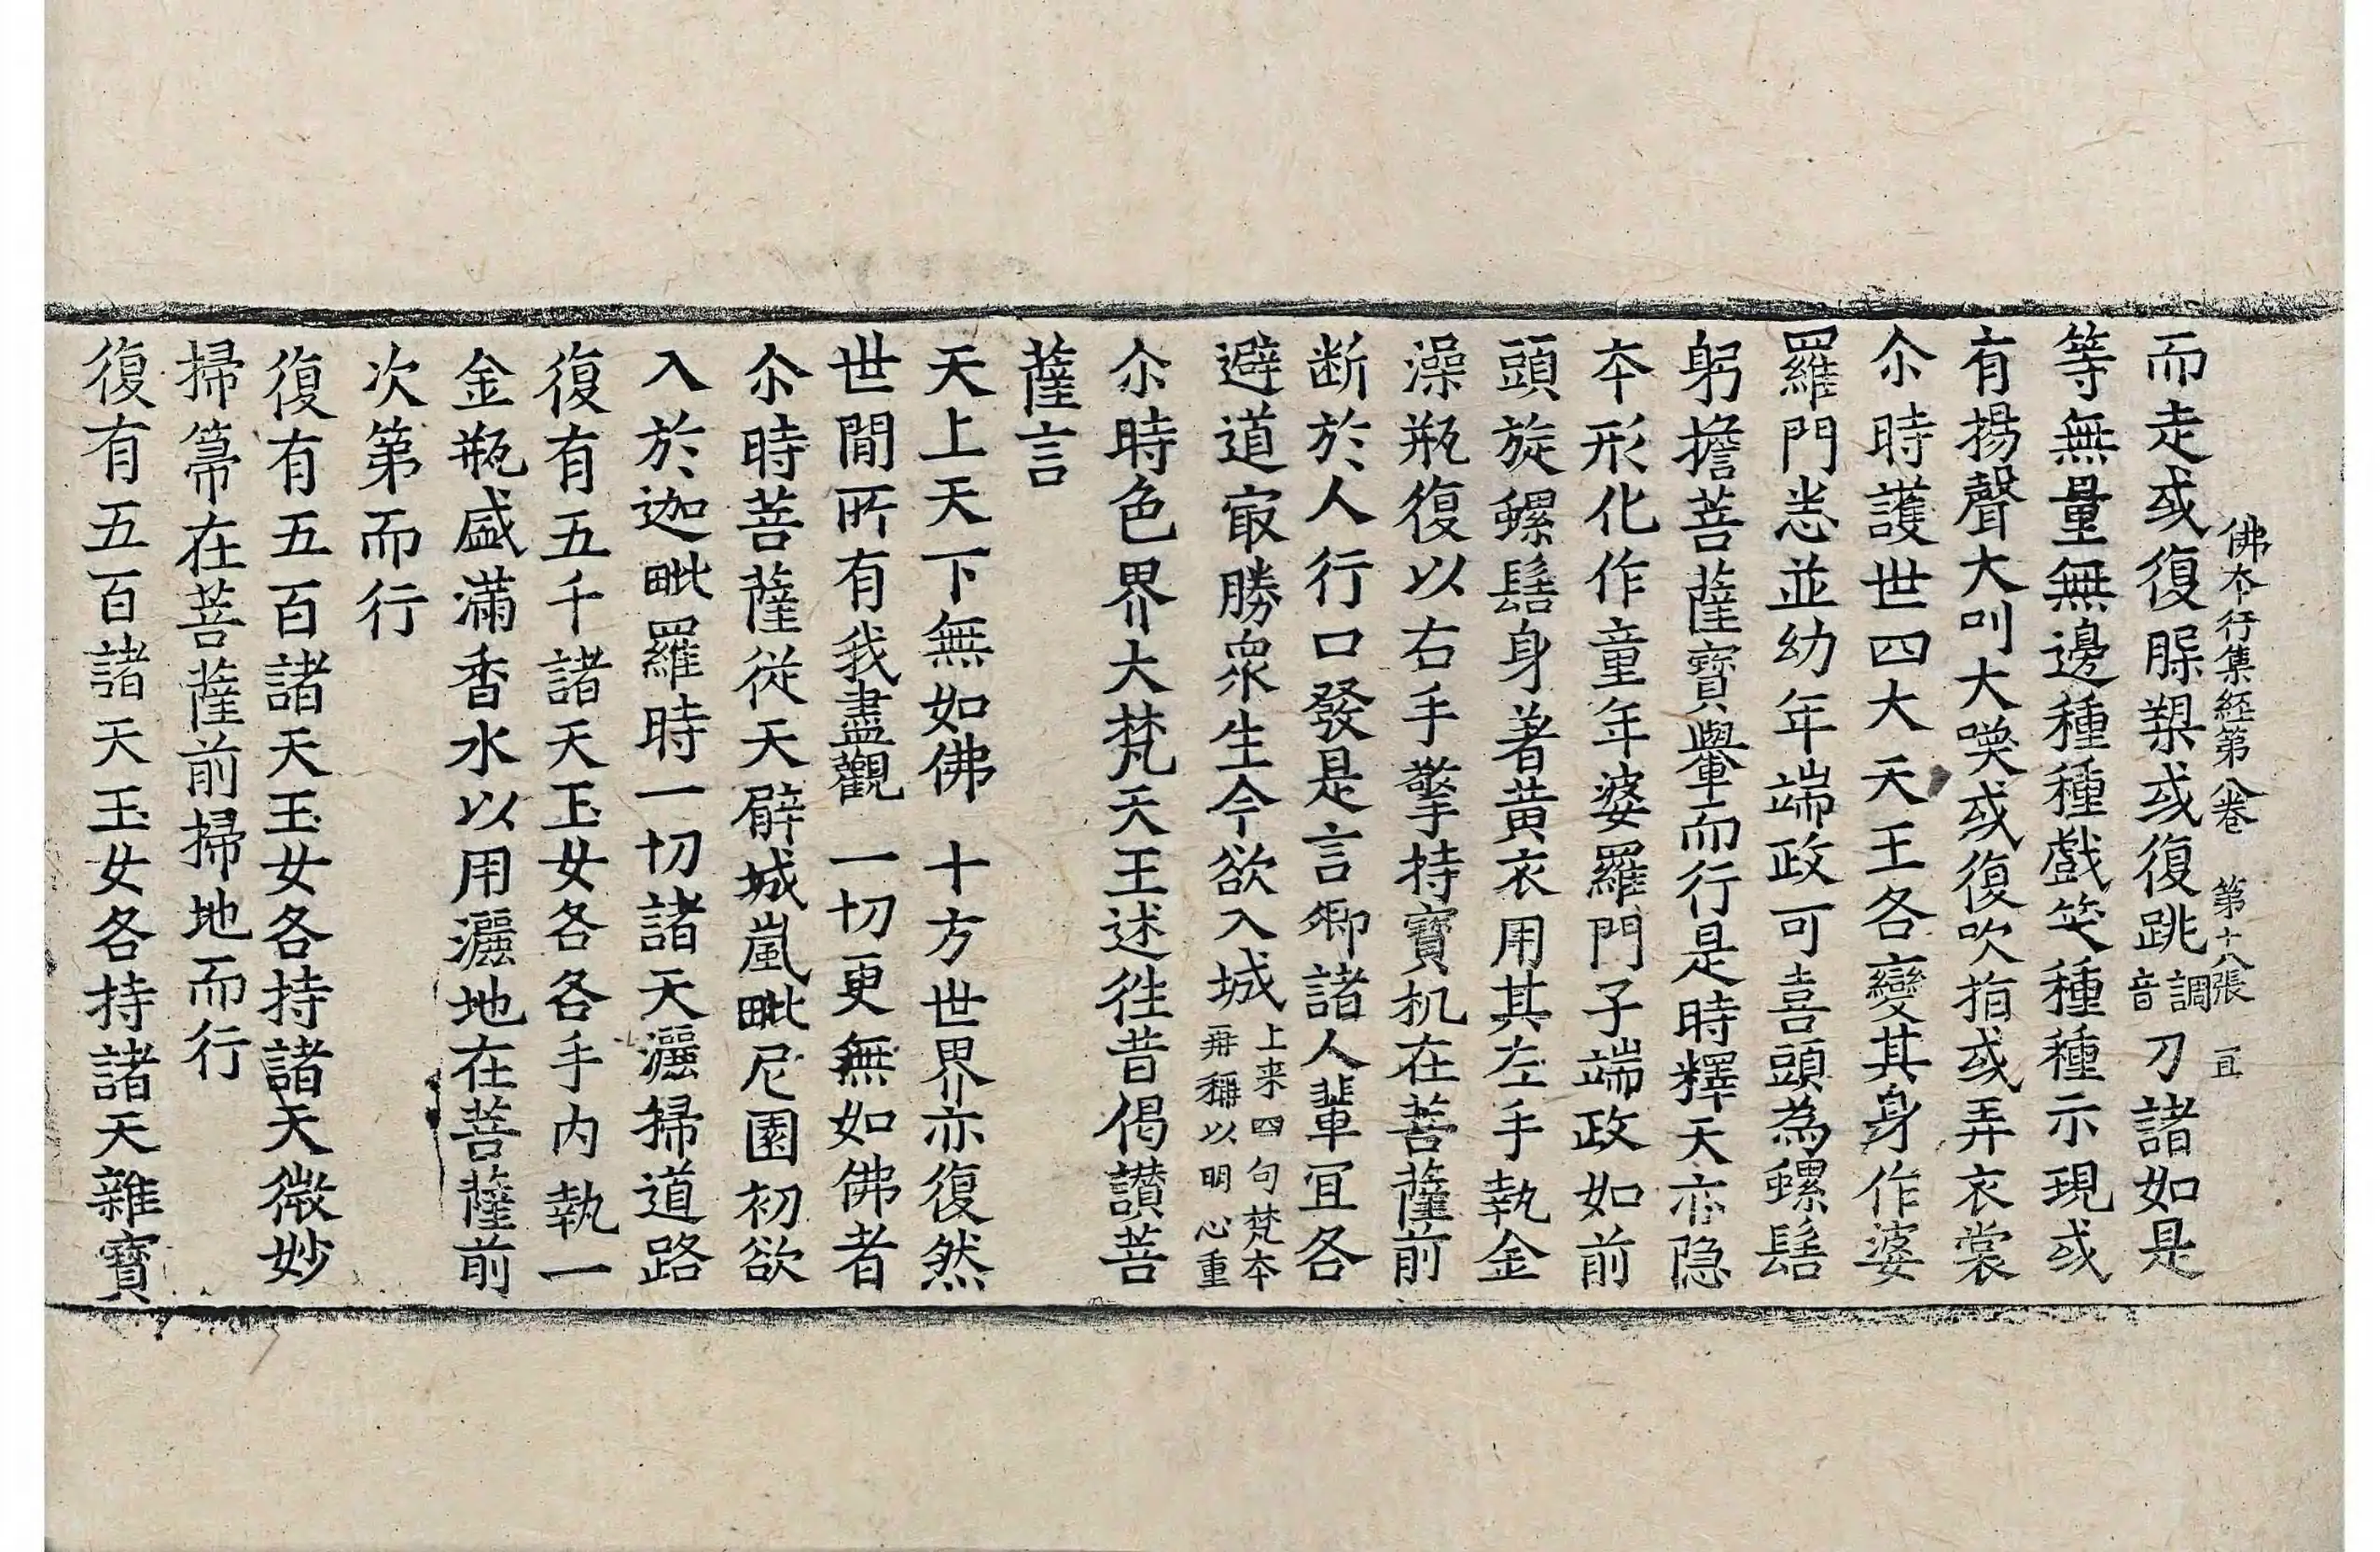 佛本行集經第八卷 第十八張 宜
而走或復脲槊或復跳調音刀諸如是
等無量無邊種種戲笑種種示現或
有揚聲大叫大喚或復吹指或弄衣裳
尒時護世四大天王各變其身作婆
羅門恙並幼年端政可喜頭為螺髻
躬擔菩薩寶轝而行是時釋天亦隐
夲形化作童年婆羅門子端政如前
頭旋螺髻身著黄衣用其左手執金
澡瓶復以右手擎持寶机在菩薩前
断於人行口發是言卿諸人輩冝各
避道㝡勝衆生今欲入城上来四句梵本再稱以明心重
尒時色界大梵天王述徃昔偈讃菩
薩言
天上天下無如佛 十方世界亦復然
世間所有我盡觀 一切更無如佛者
尒時菩薩従天臂城嵐毗尼園初欲
入於迦毗羅時一切諸天灑掃道路
復有五千諸天玉女各各手内執一
金瓶盛滿香水以用灑地在菩薩前
次第而行
復有五百諸天玉女各持諸天微妙
掃箒在菩薩前掃地而行
復有五百諸天玉女各持諸天雜寶